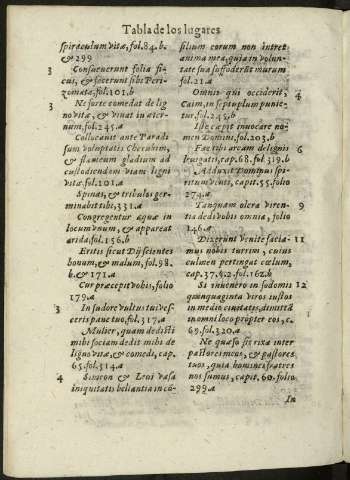 Tabla de los lugares
spiraculum vitæ, fol. 84. b.
& 299
3 Consuerunt folia fi-
cus, & fecerunt sibi Peri-
zomata, fol. 101. b
3 Ne forte comedat de lig
no vitæ, & vivat in æter-
num, fol. 245. a
Collucavit ante Paradi
sum voluptatis Cherubim,
& flameum gladium ad
custodiendam viam ligni
vitæ, fol. 101. a
Spinas, & tribulos ger-
minabit tibi, 331. a
Congregentur aquæ in
locum vnum, & appareat
arida, fol. 156. b
Eritis sicut Dij scientes
bonum, & malum, fol. 98.
b. & 171. a
Cur præcepit vobis, folio
179. a
3 In sudore vultus tui ves-
ceris pane tuo, fol. 317. a
Mulier, quam dedisti
mihi sociam dedit mihi de
ligno vitæ, & comedi, cap.
65. fol. 314. a
4 Simeon & Levi vasa
iniquitatis bellantia in cō-
silium eorum non intret
anima mea, quia in volun-
tate sua suffoderūt murum
fol. 21. a
Omnis qui occiderit, 4
Caim, in septuplum punie-
tur, fol. 245. b
Iste cæpit invocare no-
men Domini, fol. 203. b
Fac tibi arcam de lignis 6
levigatis, cap. 68. fol. 319. b
Adduxit Dominus spi-
ritum venti, capit. 55. folio
274. a
Tanquam olera viren- 9
tia dedi vobis omnia, folio
146. a
Dixerunt venite facia- 11
mus nobis turrim, cuius
culmen pertingat cœlum,
cap. 37. §. 2. fol. 162. b
Si invenero in sodomis 12
quinquaginta viros iustos
in medio civitatis, dimittā
in omni loco propter eos, c.
69. fol. 320. a
Ne quæso sit rixa inter
pastores meos, & pastores
tuos, quia homines fratres
nos sumus, capit. 60. folio
299. a
In